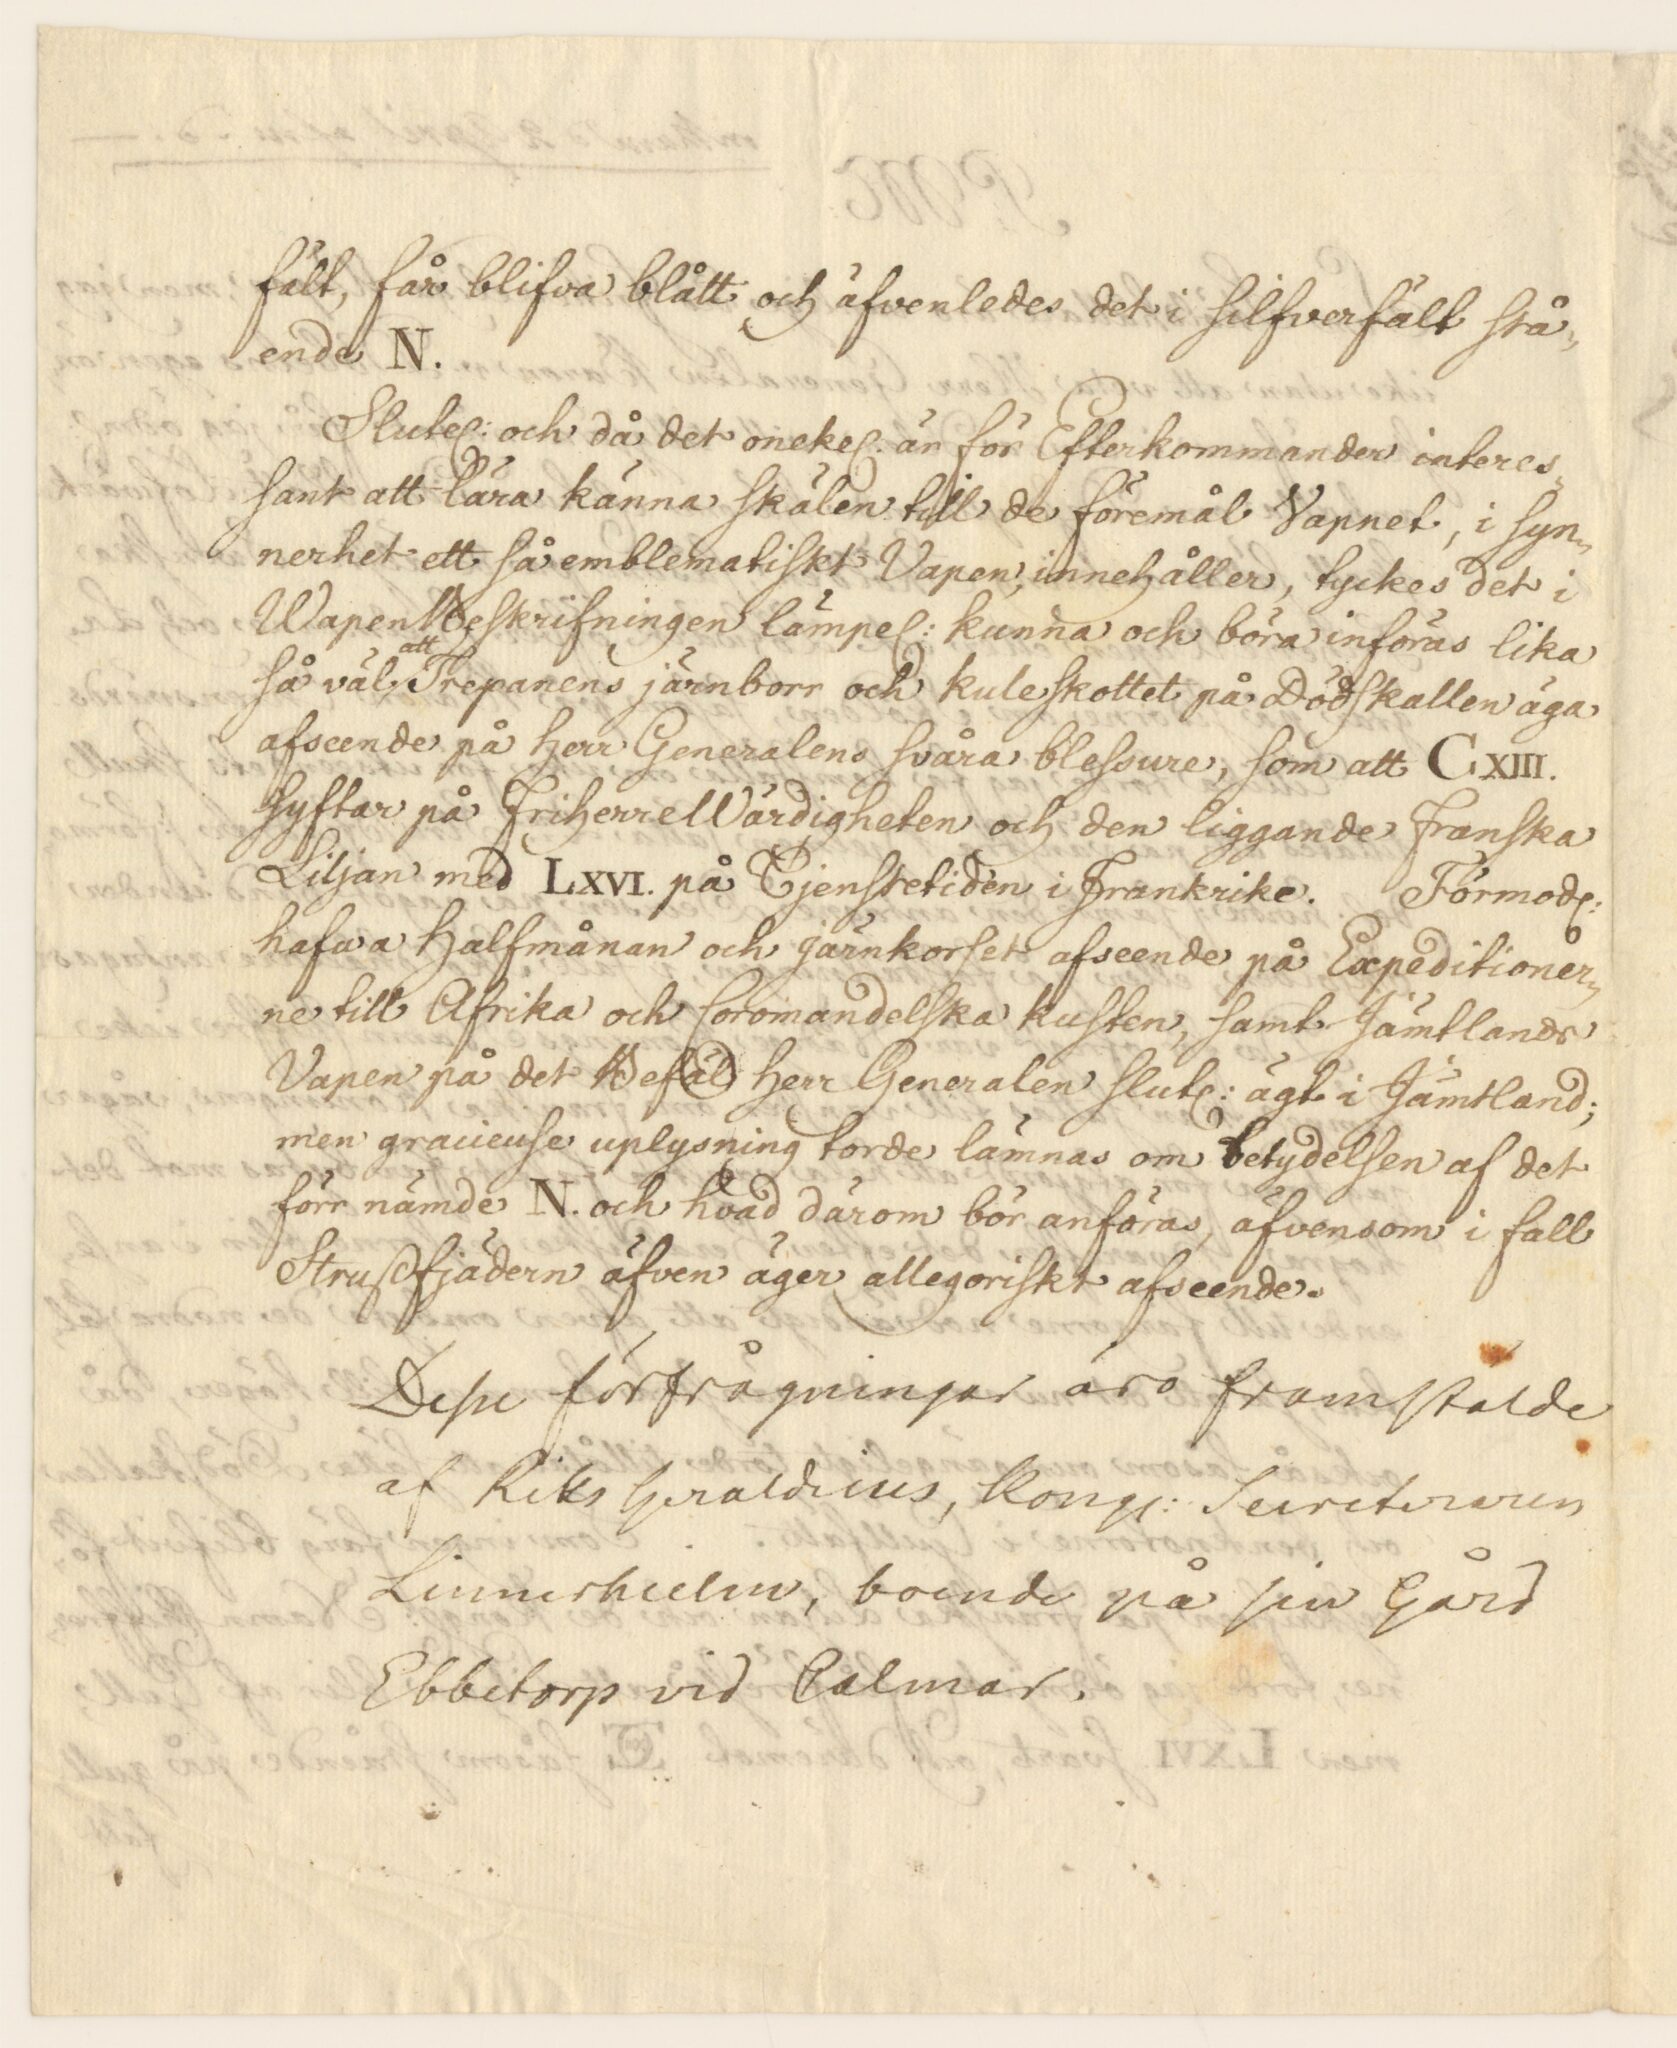 fält, får blifva blått och äfvenledes det i silfverfält stå„
ende N.
Slutel: och då det onekel. är för Efterkommander interes„
sant att lära känna skälen till de föremål Vapnet, i syn„
nerhet ett så emblematiskt Vapen, innehåller, tyckes det i
WapenBeskrifningen lämpel: kunna och böra införas lika
så väl att Trepanens järnborr och kuleskottet på Dödskallen äga
afseende på Herr Generalens svåra blessure, som att C.XIII.
syftar på FriherreWärdigheten och den liggande Franska
Liljan med LXVI. på Tjenstetiden i Frankrike. Förmodel:
hafwa Halfmånan och järnkorset afseende på Expeditioner„
ne till Afrika och Coromandelska kusten, samt Jämtlands
Vapen på det Befäl Herr Generalen slutel: ägt i Jämtland;
men gracieuse uplysning torde lämnas om betydelsen af det
förr nämde N. och hvad därom bör anföras, äfvensom i fall
Strußfjädern äfven äger allegoriskt afseende.
Desse förfrågningar äro framstälde
af Riks Heraldicus, Kongl: Secreteraren
Linnerhielm, boende på sin Gård
Ebbetorp vid Calmar.